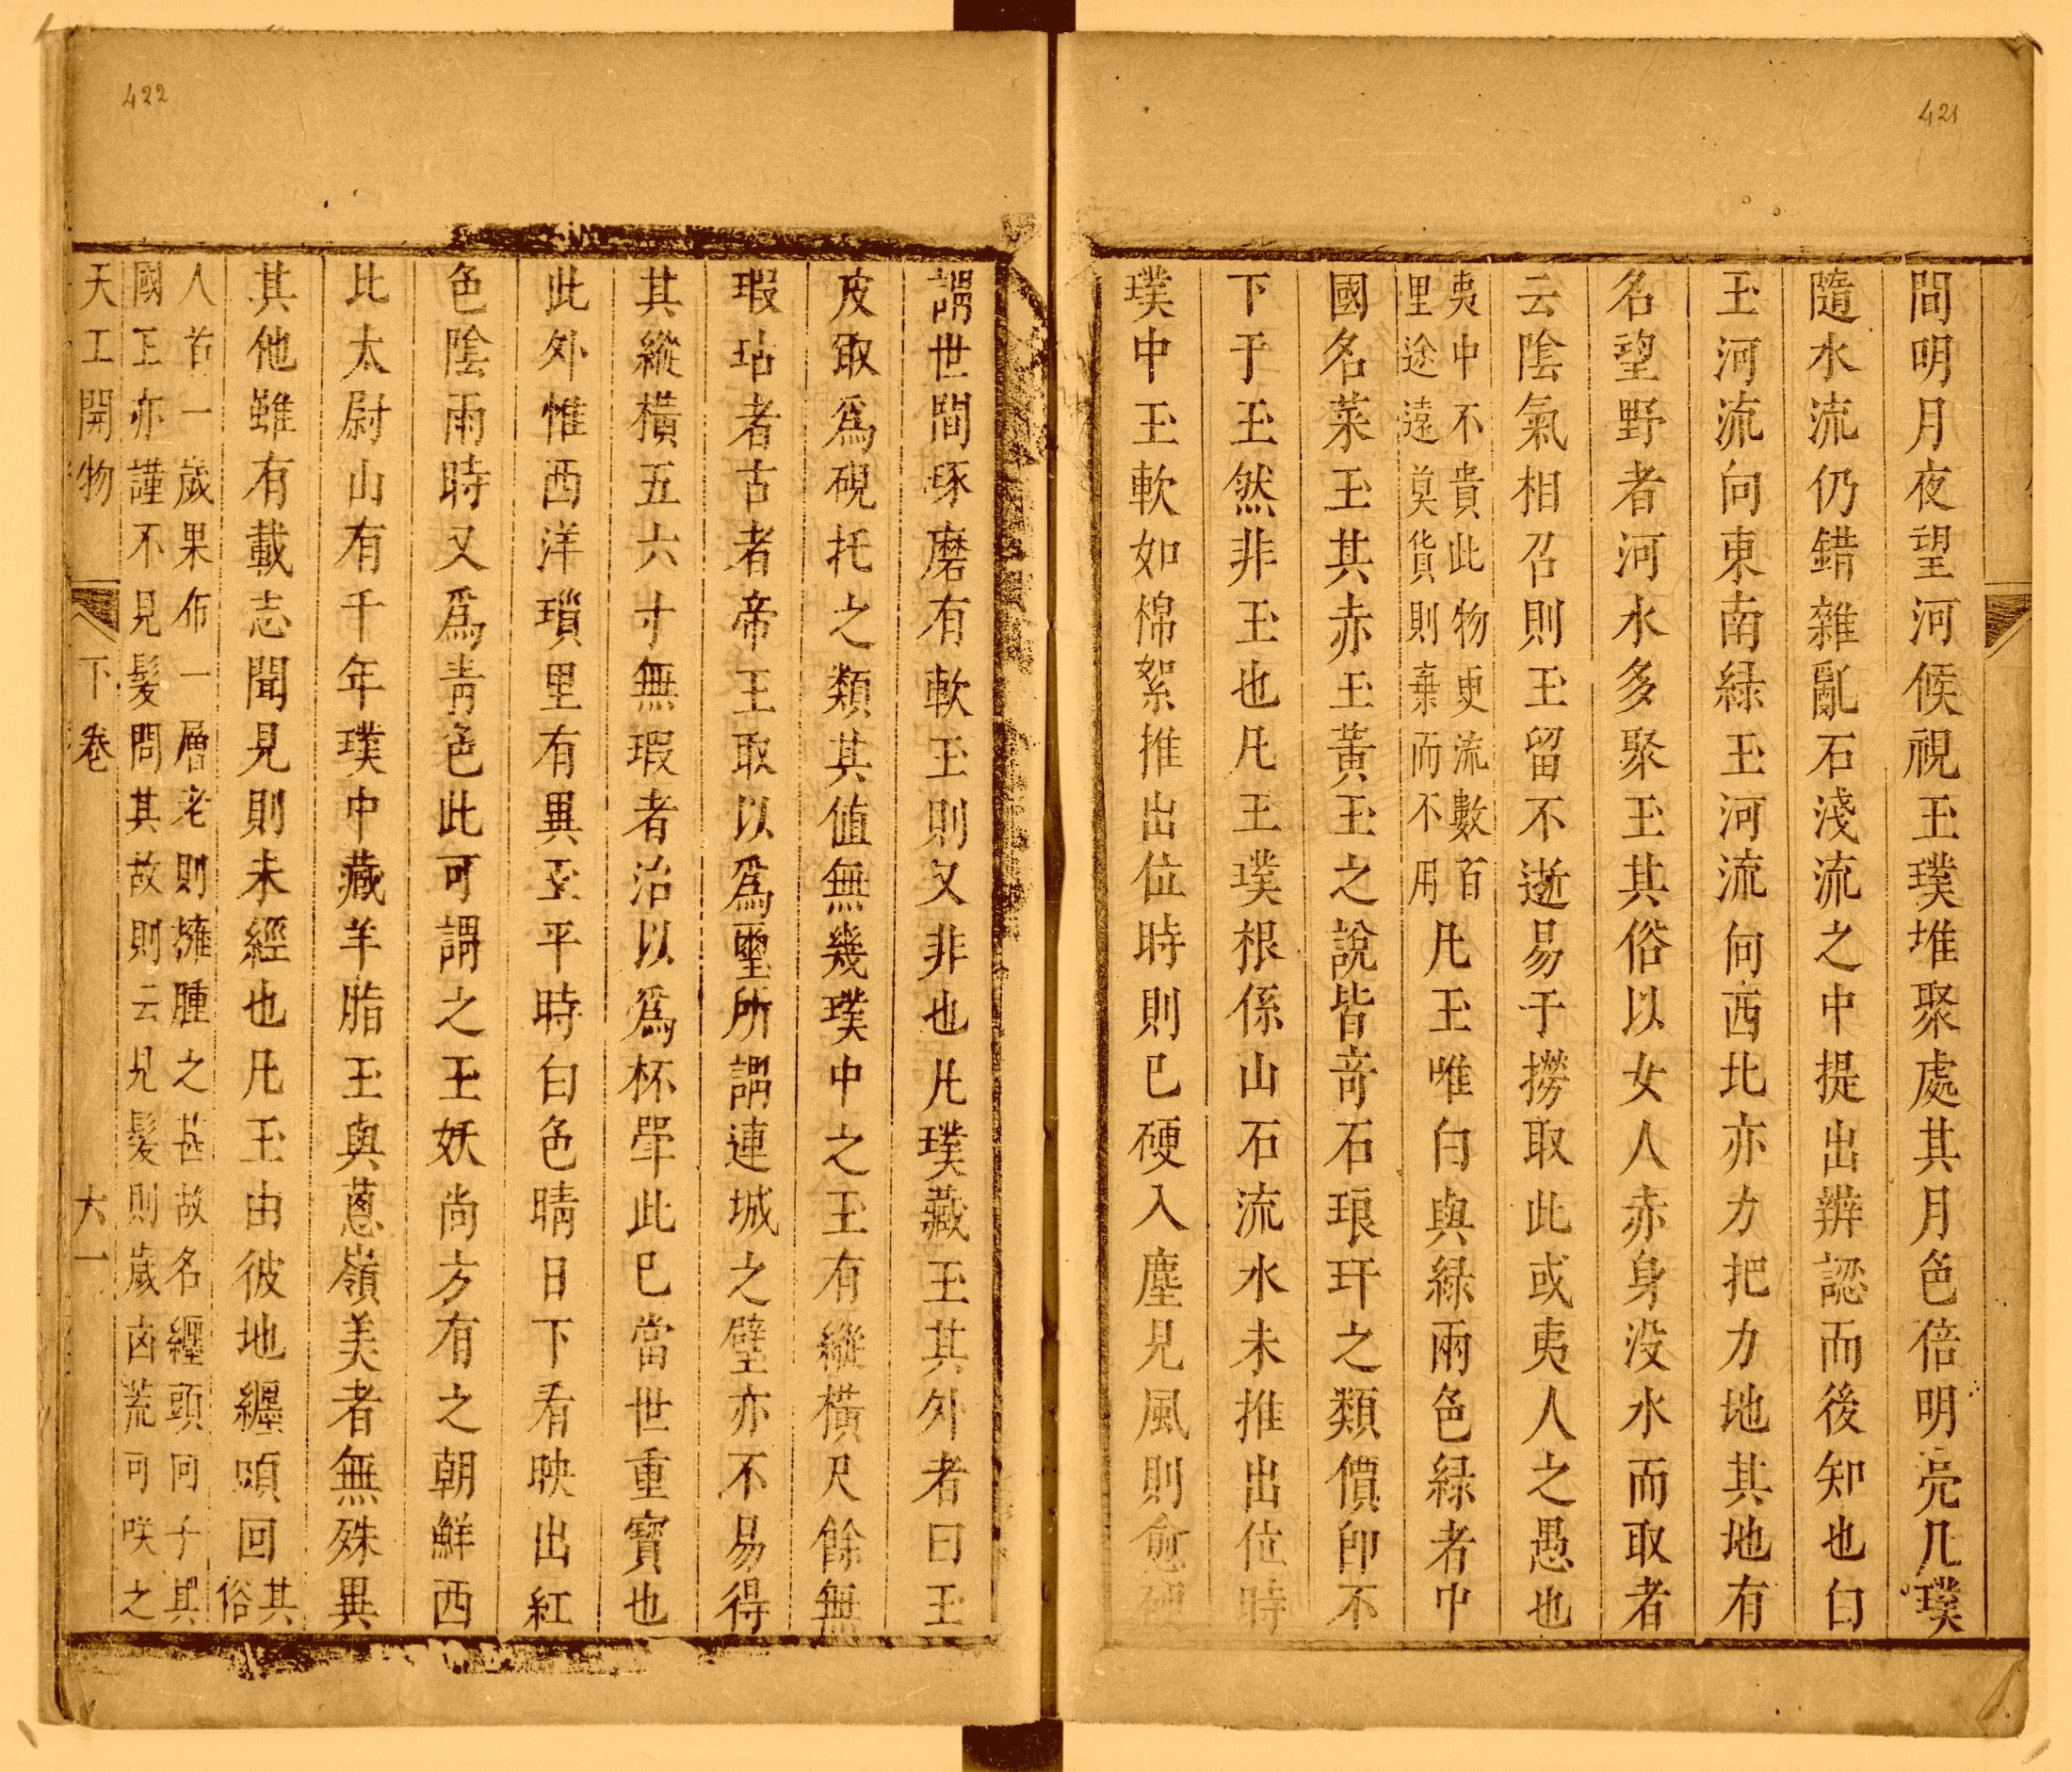 421
間明月夜望河候視玉璞堆聚處其月色倍明亮凡璞
隨水流仍錯雜亂石淺流之中提出辨認而後知也白
玉河流向東南綠玉河流向西北亦力把力地其地有
名望野者河水多聚玉其俗以女人赤身没水而取者
云陰氣相召則玉留不逝易于撈取此或夷人之愚也
夷中不貴此物更流數百
里途遠莫貨則棄而不用
凡玉唯白與綠兩色綠者中
國名菜玉其赤玉黃玉之說皆奇石琅玕之類價即不
下于玉然非玉也凡玉璞根係山石流水未推出位時
璞中玉軟如棉絮推出位時則已硬入塵見風則愈硬
422
謂世間琢磨有軟玉則又非也凡璞藏玉其外者曰玉
皮取爲硯托之類其值無幾璞中之玉有縱橫尺餘無
瑕玷者古者帝王取以爲璽所謂連城之璧亦不易得
其縱橫五六寸無瑕者治以爲杯斝此已當世重寶也
此外惟西洋瑣里有異玉平時白色晴日下看映出紅
色陰雨時又爲青色此可謂之玉妖尚方有之朝鮮西
北太尉山有千年璞中藏羊脂玉與蔥嶺美者無殊異
其他雖有載志聞見則未經也凡玉由彼地纏頭回
其俗
人首一歲果布一層老則擁腫之甚故名纏頭回子其
國王亦謹不見髮問其故則云見髮則歲凶荒可咲之
天工開物 下卷 六一